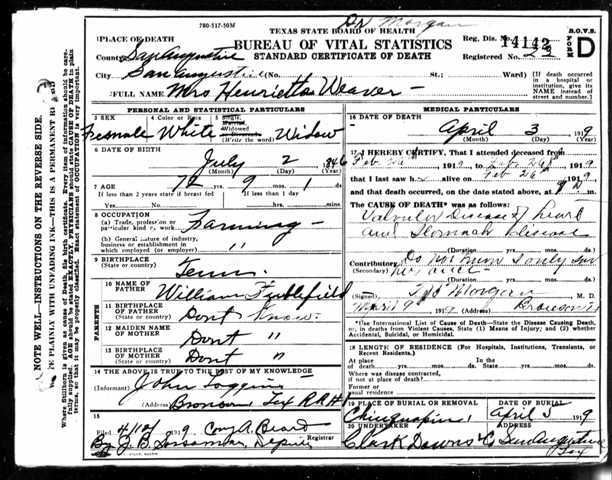 780-517-50M
Dr Morgan
TEXAS STATE BOARD OF HEALTH
BUREAU OF VITAL STATISTICS
STANDARD CERTIFICATE OF DEATH
Reg. Dis. No. 14142
Registered No. 23
B.O.V.S.
FORM D
PLACE OF DEATH
County San Augustine
City San Augustine (No. St.; Ward)
[If death occurred in a hospital or institution, give its NAME instead of street and number.]
FULL NAME Mrs Henrietta Weaver
PERSONAL AND STATISTICAL PARTICULARS
3 SEX
4 Color or Race
5 Single, Married, Widowed or Divorced (Write the word)
Female White Widow
6 DATE OF BIRTH
July 2 1846
(Month) (Day) (Year)
7 AGE 72 9 1 ds.
If less than 2 years state if breast fed If less than 1 day hrs. min.
8 OCCUPATION
(a) Trade, profession or particular kind of work Farming
(b) General nature of industry, business or establishment in which employed (or employer) "
9 BIRTHPLACE
(State or country) Tenn.
PARENTS
10 NAME OF FATHER William Stubblefield
11 BIRTHPLACE OF FATHER
(State or country) Dont Know
12 MAIDEN NAME OF MOTHER Dont "
13 BIRTHPLACE OF MOTHER
(State or country) Dont "
14 THE ABOVE IS TRUE TO THE BEST OF MY KNOWLEDGE
(Informant) John Loggins
(Address) Bronson Tex RR#1
15
Filed 4/12 1919 Cony A. Beard
Registrar
By J. B. Deputy
MEDICAL PARTICULARS
16 DATE OF DEATH
April 3 1919
(Month) (Day) (Year)
17 I HEREBY CERTIFY, That I attended deceased from
Feb 26 1919, to Feb 26 1919
that I last saw h alive on Feb 26 1919
and that death occurred, on the date stated above, at 9 P M.
The CAUSE OF DEATH* was as follows:
Valvular Disease of heart
and Stomach disease
(Duration) yrs. mos. ds.
Contributory Do not know I only saw
(Secondary) her once
(Duration) yrs. mos. ds.
(Signed) Morgan M. D.
April 9 1919 Bronson
*Use International List of Cause of Death—State the Disease Causing Death, or, in deaths from Violent Causes, State (1) Means of Injury; and (2) whether Accidental, Suicidal, or Homicidal.
18 LENGTH OF RESIDENCE (For Hospitals, Institutions, Transients, or Recent Residents.)
At place of death yrs. mos. ds. In the State yrs. mos. ds.
Where was disease contracted, if not at place of death?
Former or usual residence
19 PLACE OF BURIAL OR REMOVAL
Chinquapin
DATE OF BURIAL
April 5 1919
20 UNDERTAKER
Clark Downs & Co
ADDRESS
San Augustine Tex
NOTE WELL—INSTRUCTIONS ON THE REVERSE SIDE.